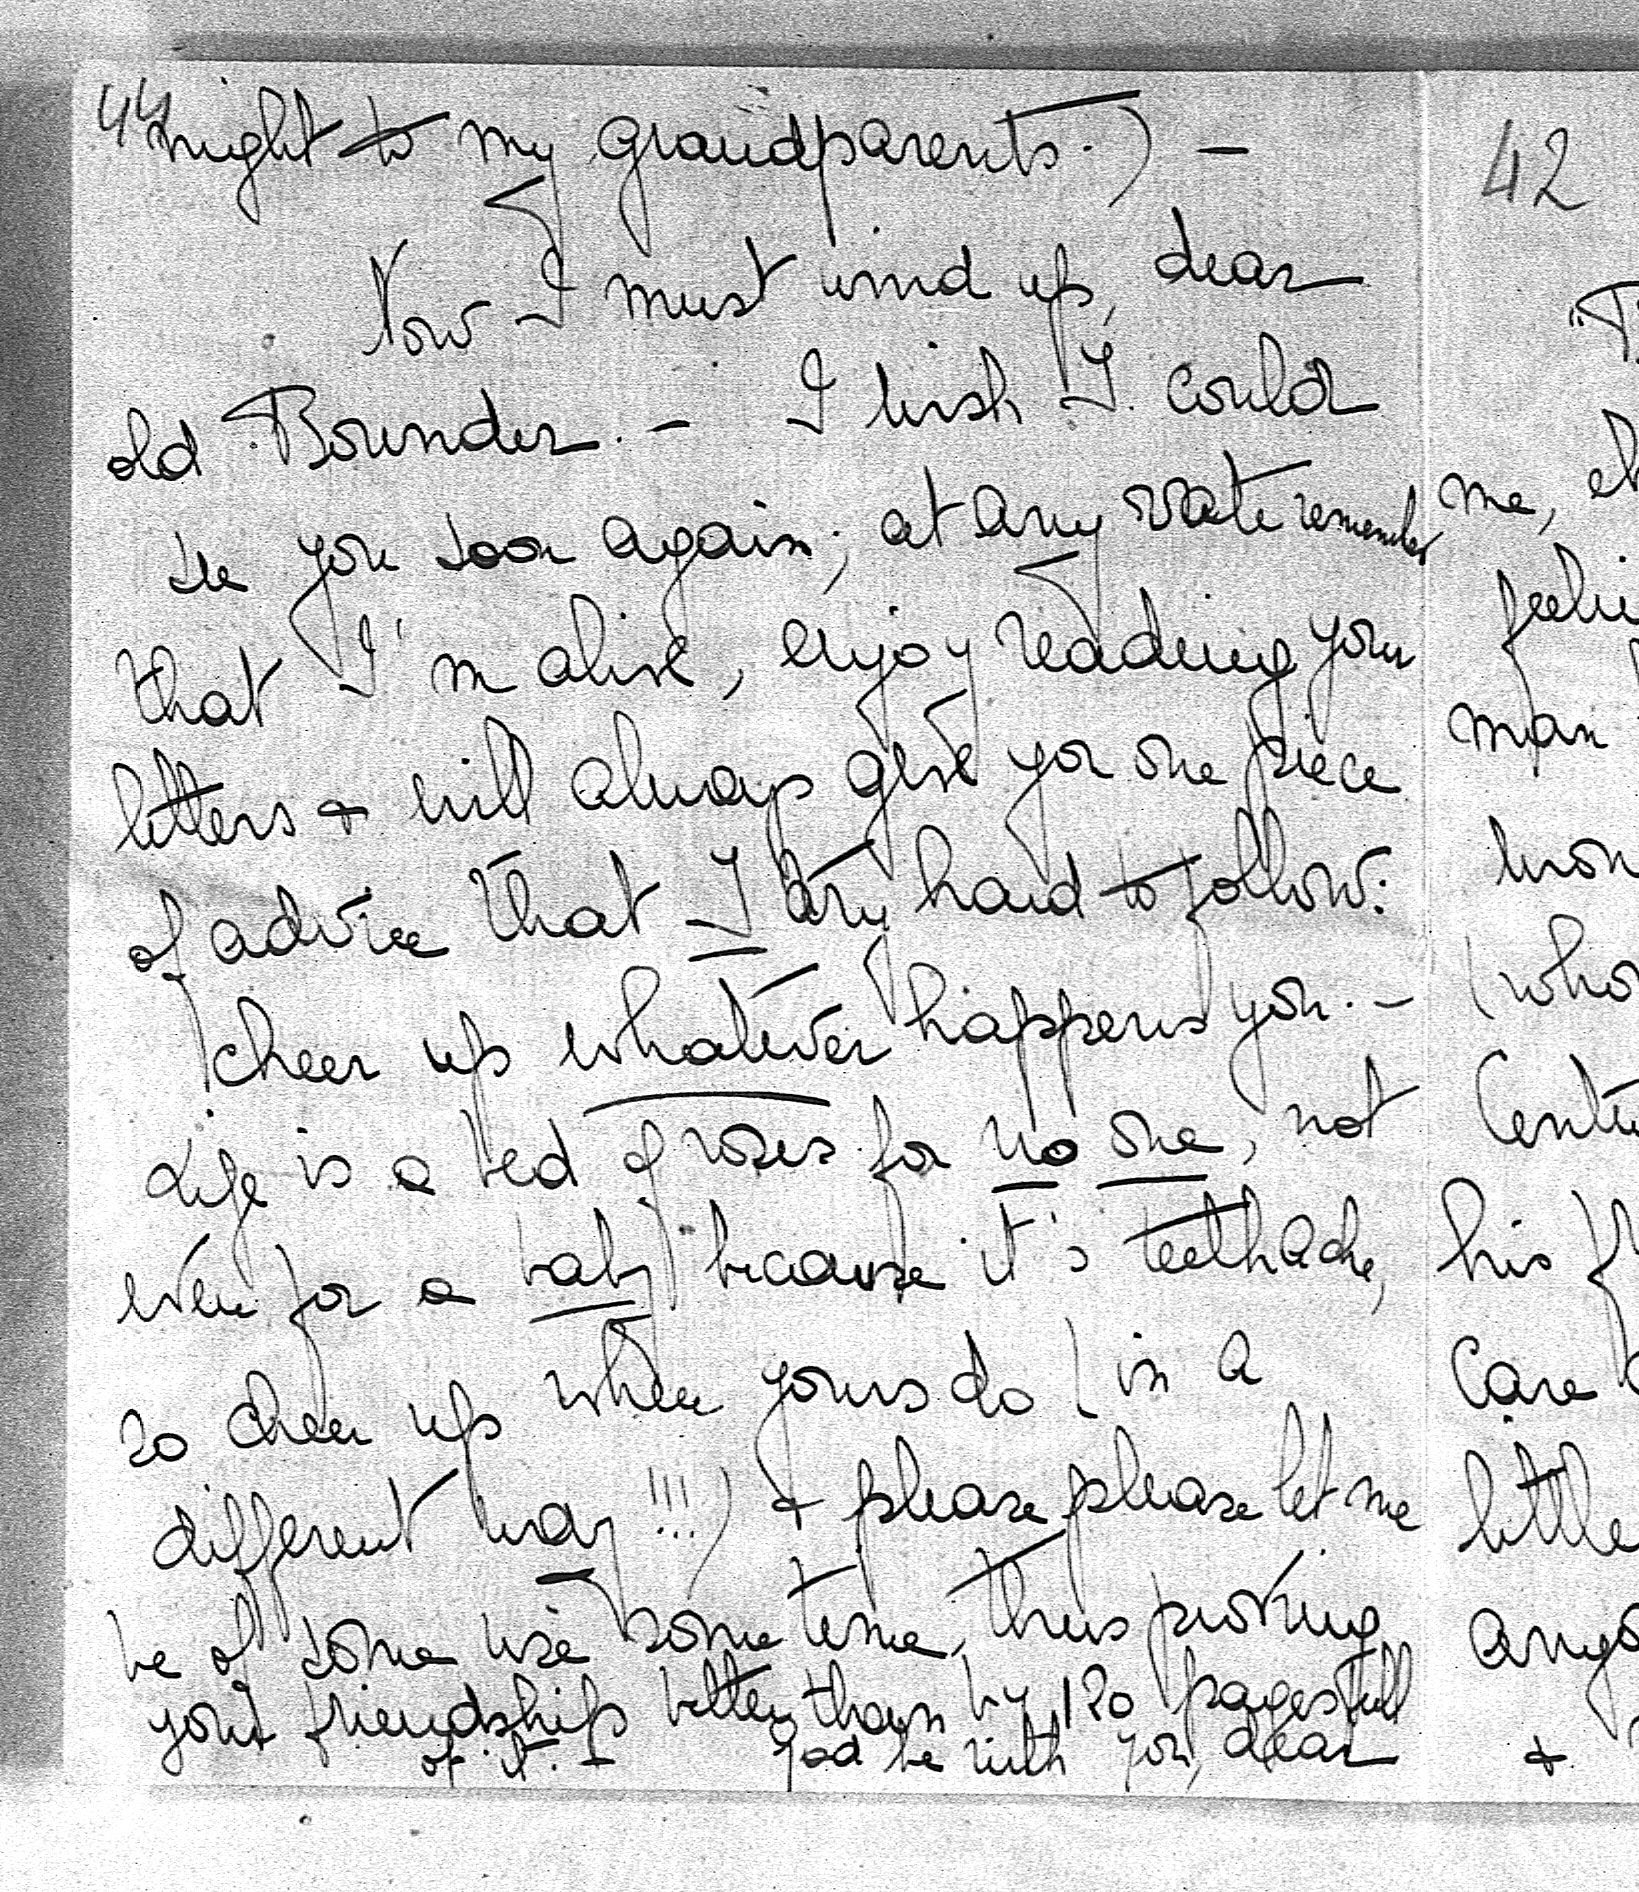 44
night to my grandparents.) -
Now I must wind up, dear
old Bounder. - I wish I could
see you soon again; at any rate remember
that I'm alive, enjoy reading your
letters + will always give you one piece
of advice that I try hard to follow:
cheer up whatever happens you. -
Life is a bed of roses for no one, not
even for a baby because it's teethache,
so cheer up when yours do (in a
different way!!!) + please please let me
be of some use some time, thus proving
your friendship better than by 120 pages full
of it. - God be with you, dear
42
"T
me,
feelin
man
(who
Cente
his
Care
little
anyo
+